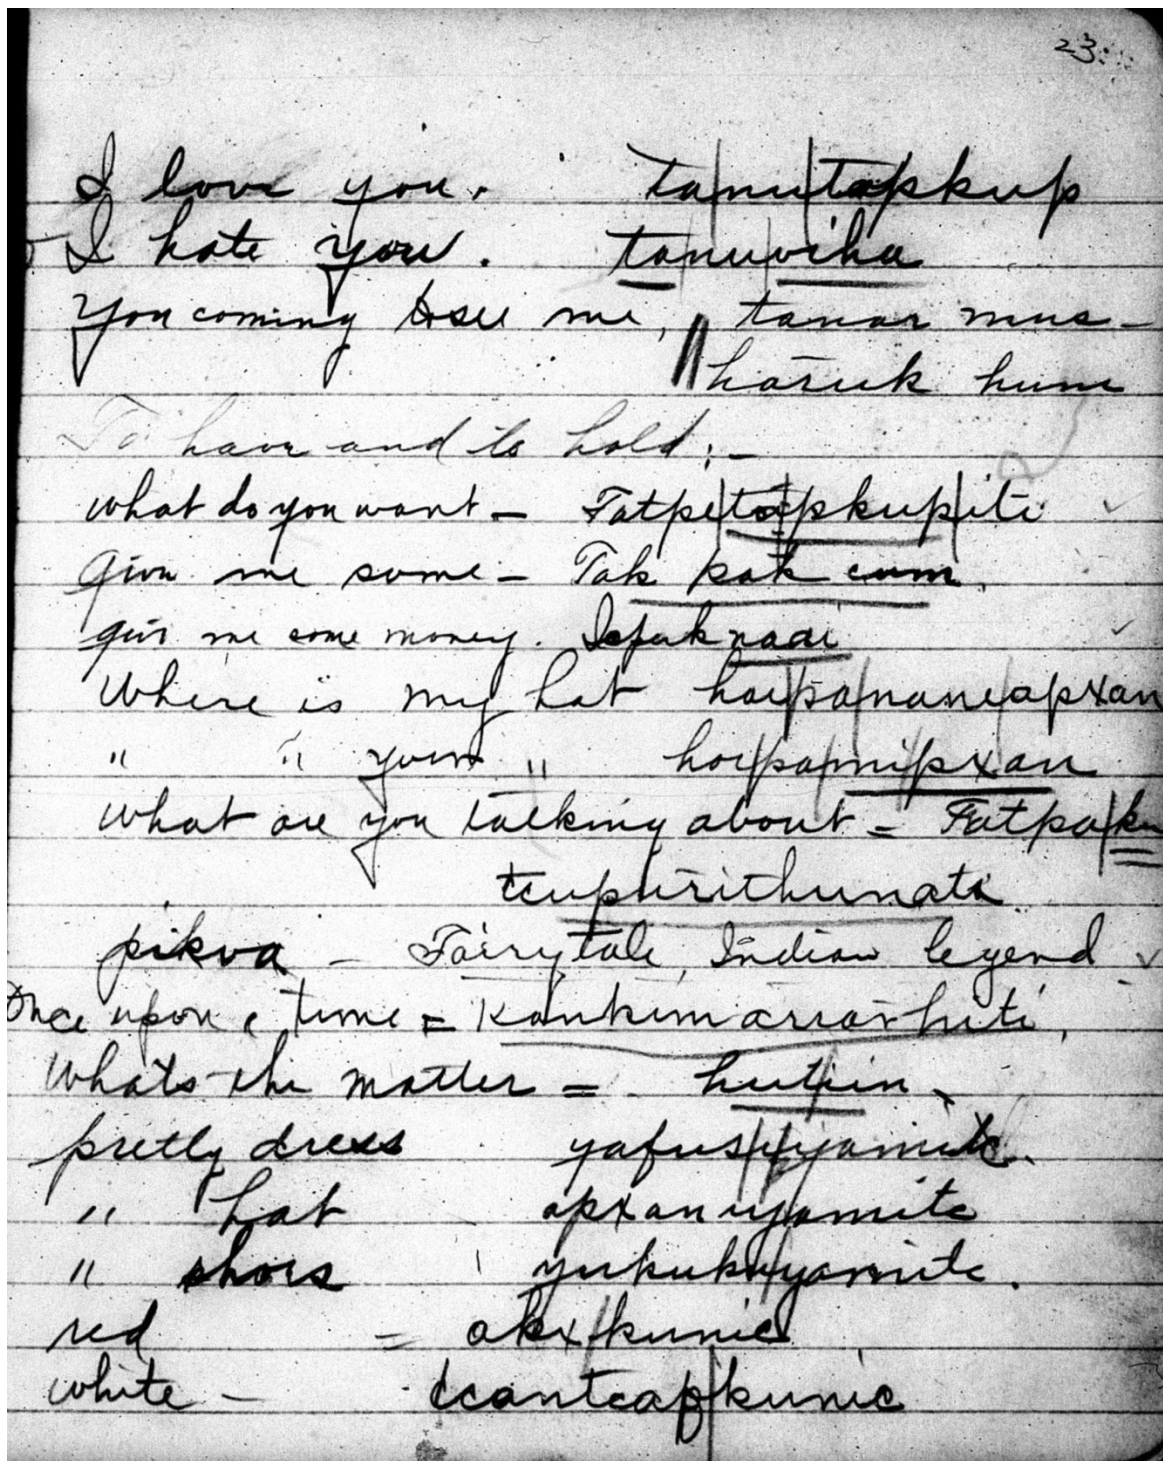 23
I love you. ta|nu|tapkup
I hate you. tanuviha
You coming to see me, tanar mus-
haruk hum
To have and to hold:-
what do you want - Fatpi|tap|kup|iti
Give me some - Tak pak cum.
give me some money.
Where is my hat hoi|pa|nani|apxan
" " your " hoi|pa|mi|pxan
What are you talking about = Fatpa|ku
tcupurithunati
pikva - Fairytale, Indian legend
Once upon a time = Kankimararahiti,
Whats the matter = hut|in
pretty dress yafus|yamate.
" hat apxan yamate
" shoes yukuku|yamate.
red = akx|kunic
white - tcantcaf|kunic